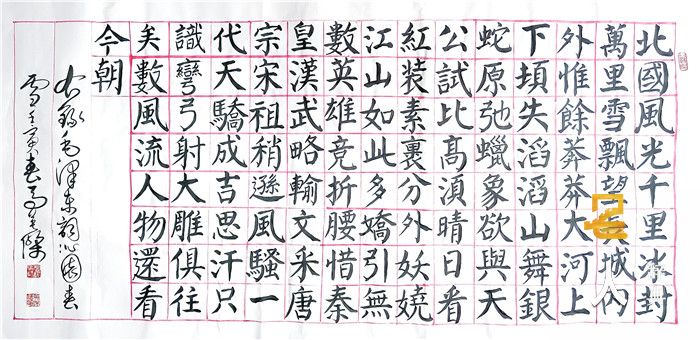 北國風光千里冰封
萬里雪飄望長城内
外惟餘莽莽大河上
下頓失滔滔山舞銀
蛇原弛蠟象欲與天
公試比高湏晴日看
紅装素裹分外妖嬈
江山如此多嬌引無
數英雄竞折腰惜秦
皇漢武略輸文采唐
宗宋祖稍遜風騷一
代天驕成吉思汗只
識彎弓射大雕俱往
矣數風流人物還看
今朝
右錄毛澤東詞沁園春
雪壬寅春